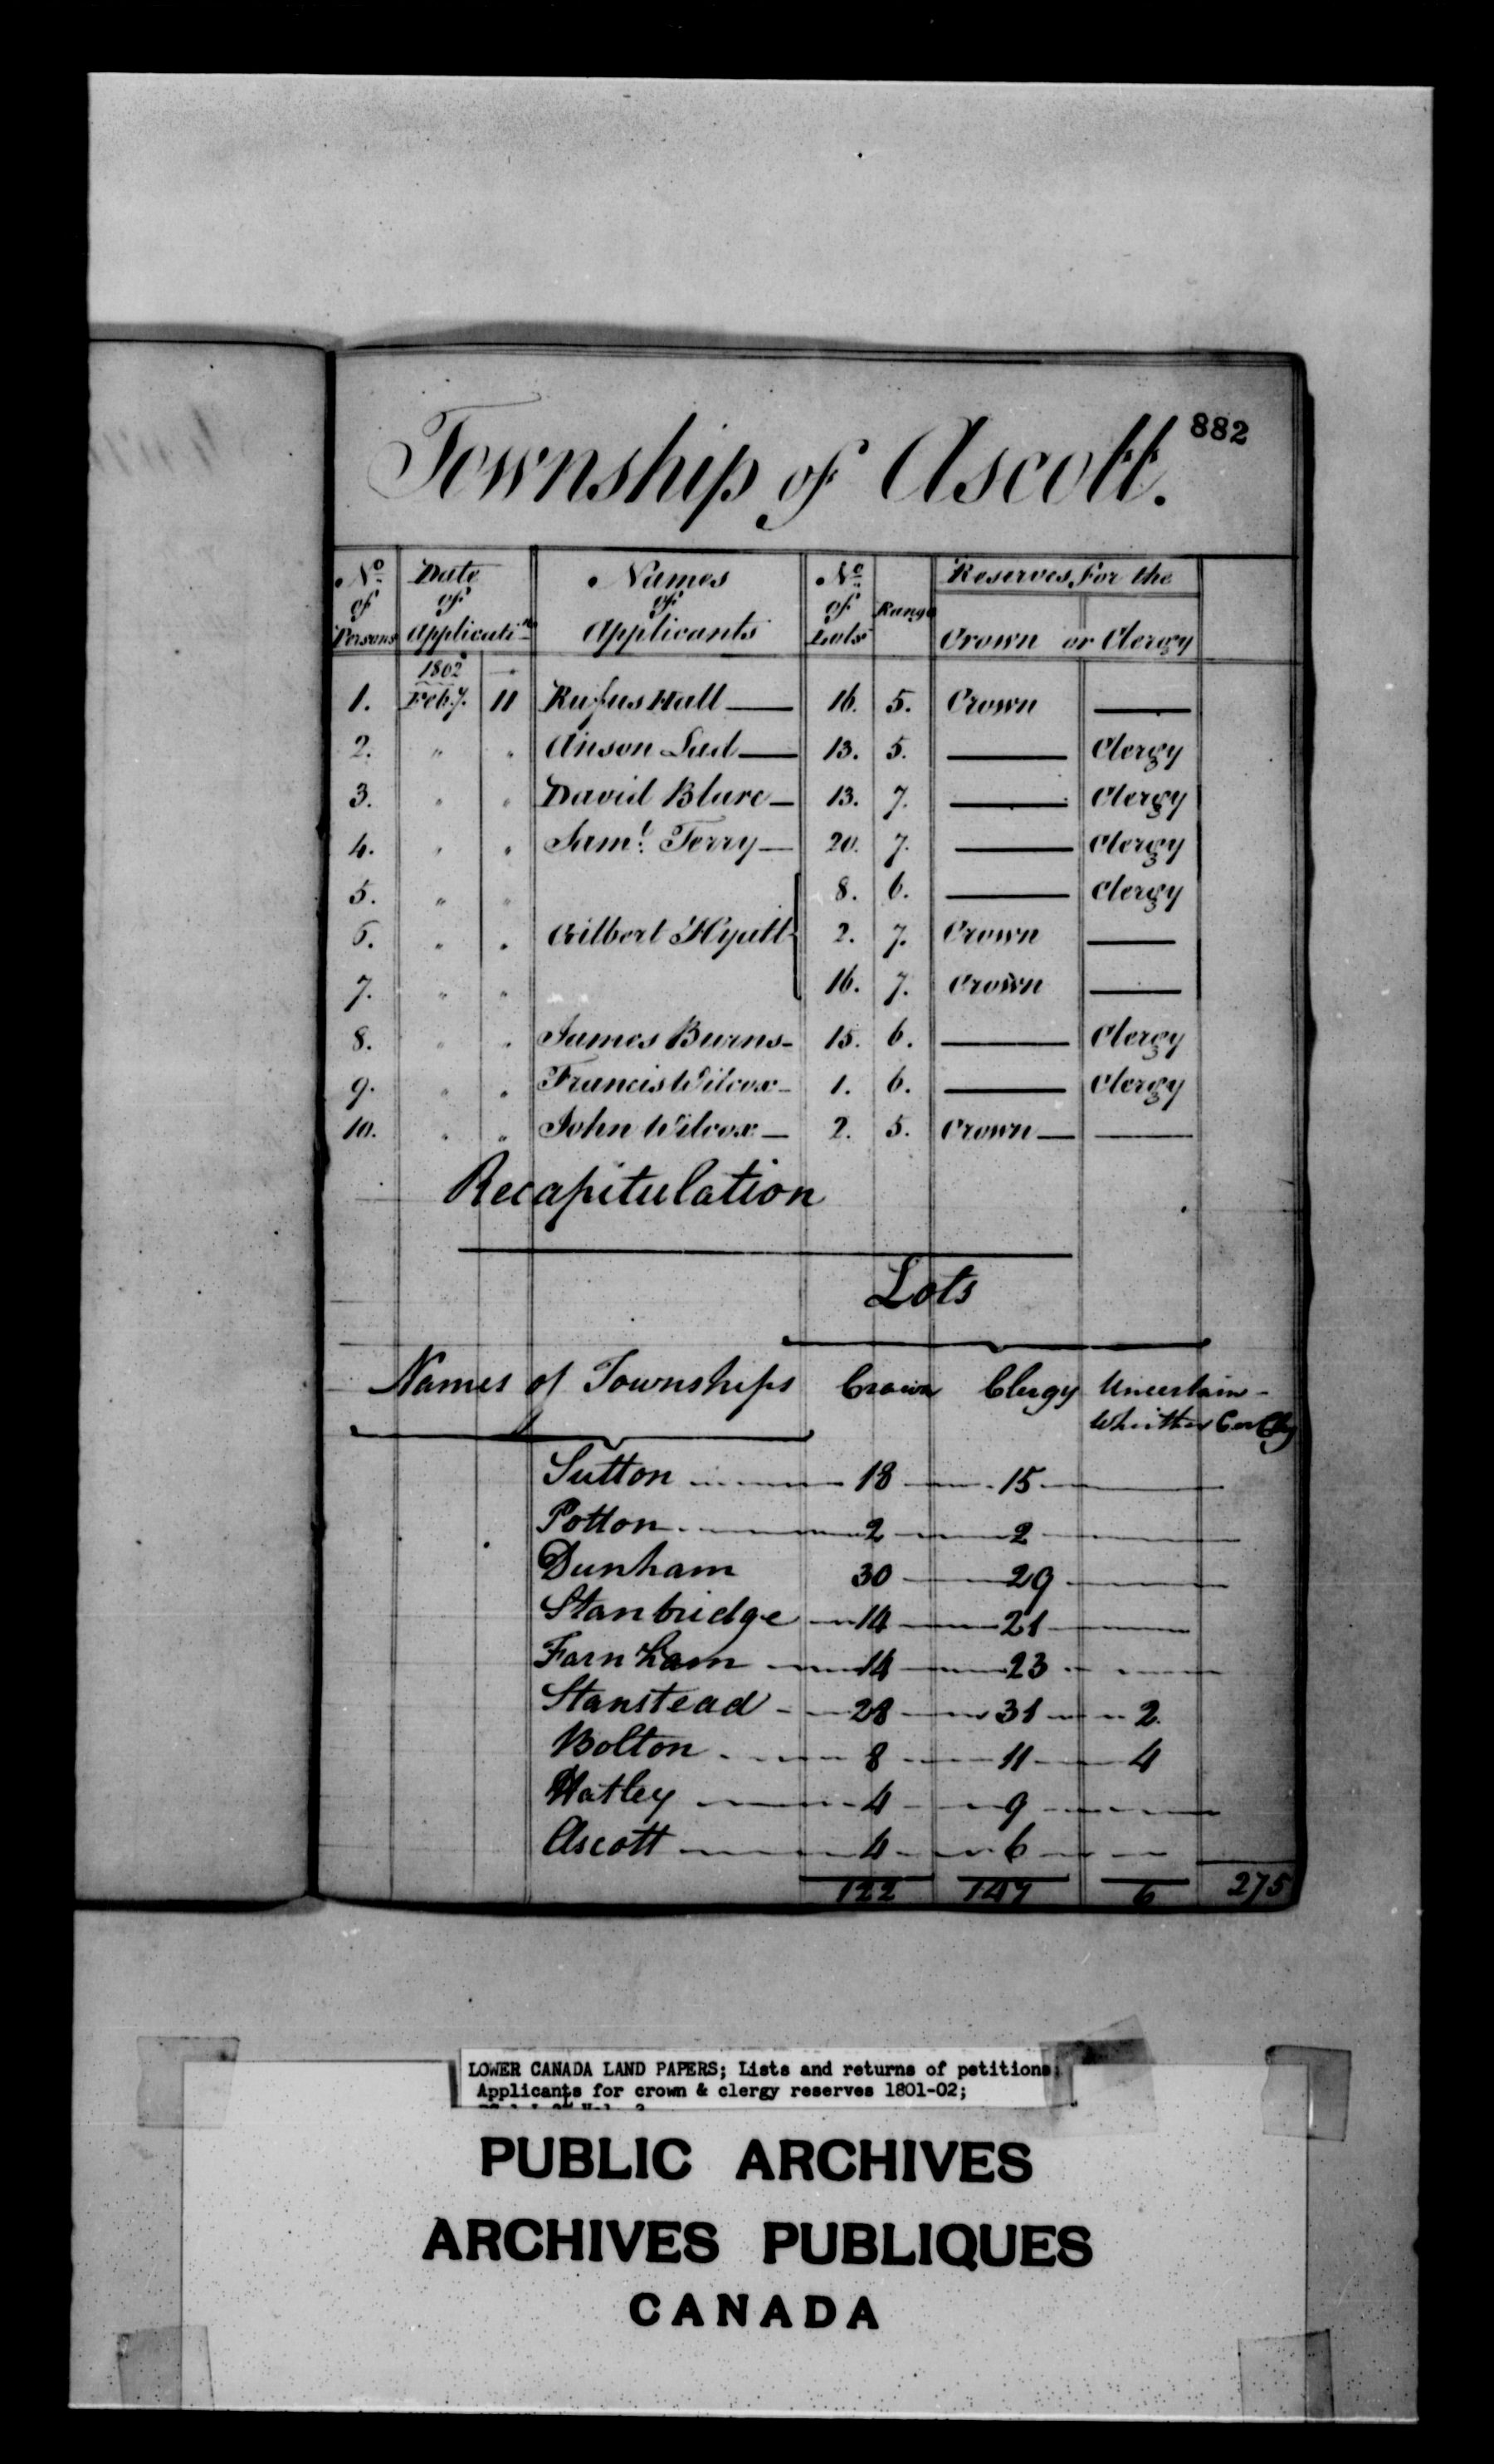 882
Township of Ascott.
No of Persons | Date of Applicatin | Names of Applicants | No of Lots | Range | Reserves for the Crown or Clergy
1802
1. Feby. 11 Rufus Hall — 16. 5. Crown —
2. " " Anson Lad — 13. 5. — Clergy
3. " " David Blare — 13. 7. — Clergy
4. " " Saml. Terry — 20. 7. — Clergy
5. " " 8. 6. — Clergy
6. " " Gilbert Hyatt 2. 7. Crown —
7. " " 16. 7. Crown —
8. " " James Burns - 15. 6. — Clergy
9. " " Francis Wilcox - 1. 6. — Clergy
10. " " John Wilcox — 2. 5. Crown — —
Recapitulation
Lots
Names of Townships Crown Clergy Uncertain -
Whither C or Clgy
Sutton 18 15
Potton 2 2
Dunham 30 29
Stanbridge 14 21
Farnham 14 23
Stanstead 28 31 2
Bolton 8 11 4
Hatley 4 9
Ascott 4 6
122 147 6 275
LOWER CANADA LAND PAPERS; Lists and returns of petitions;
Applicants for crown & clergy reserves 1801-02;
PUBLIC ARCHIVES
ARCHIVES PUBLIQUES
CANADA